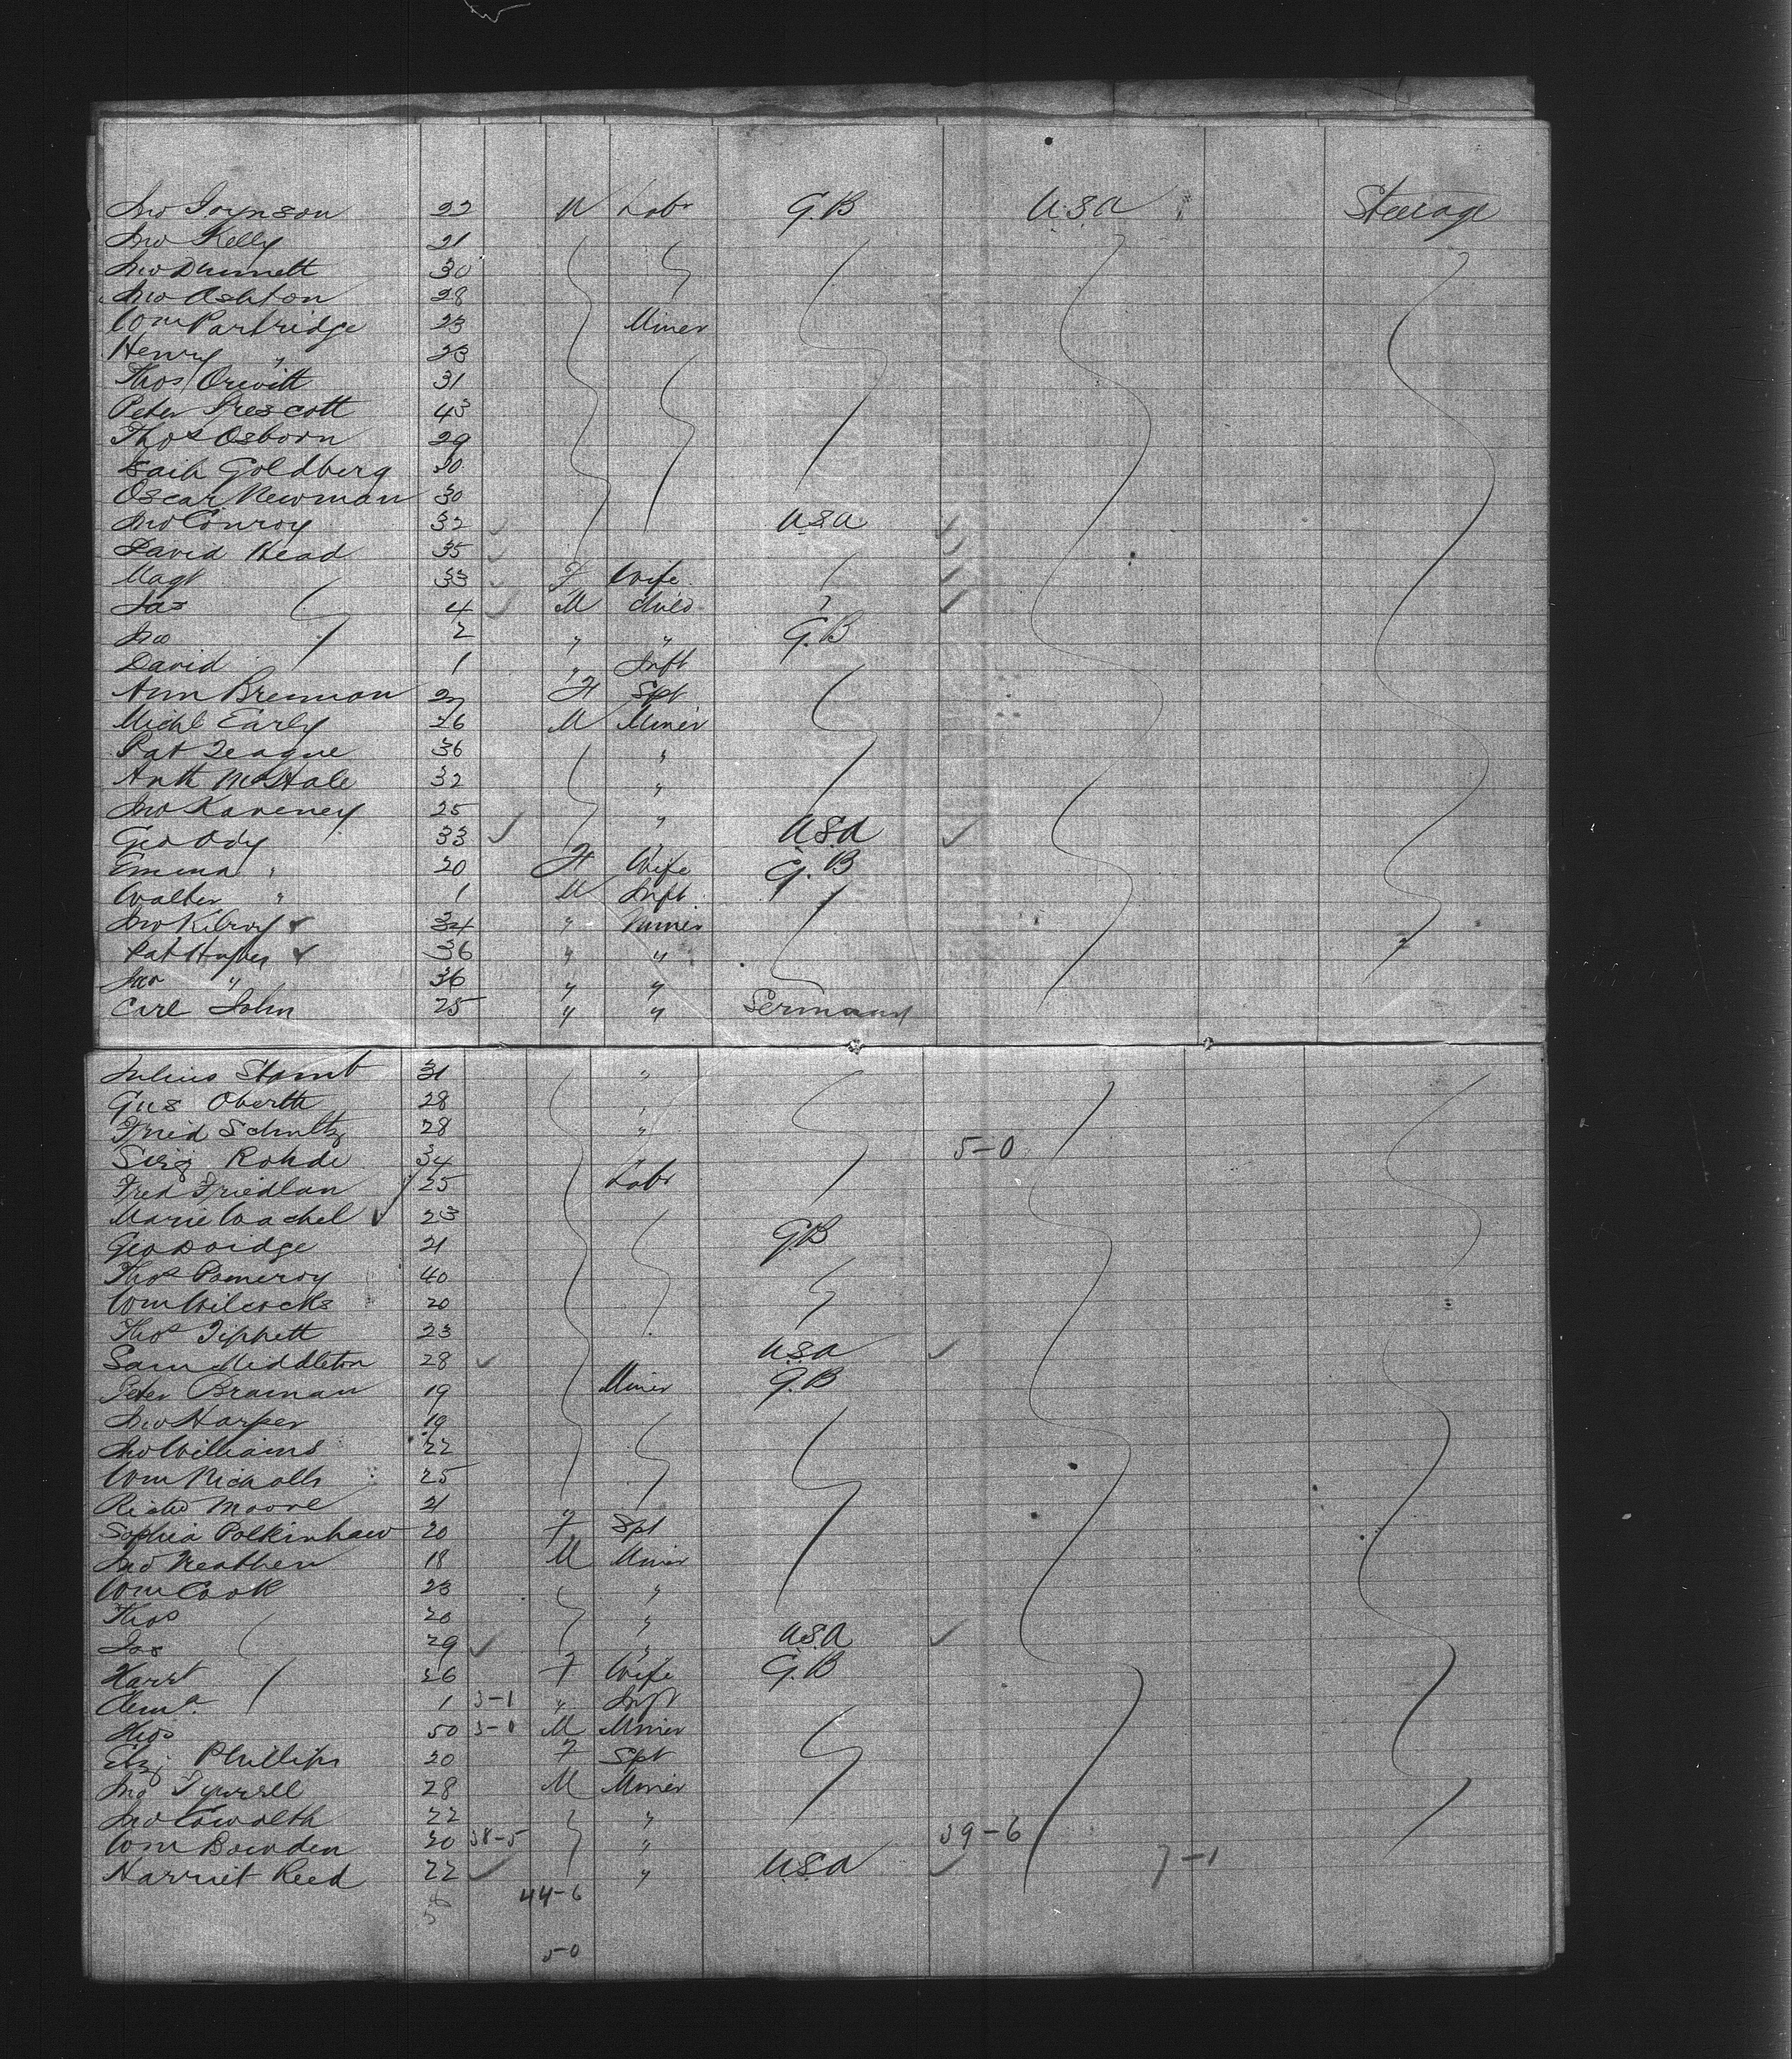 Jno Joynson 22 M Labr G.B U.S.A Steerage
Jno Kelly 21
Jno Dummett 30
Jno Ashton 28
Wm Partridge 23 Miner
Henry " 23
Thos 31
Peter Prescott 43
Thos Osborn 29
Isaih Goldberg 30
Oscar Newman 30
Jno Conroy 32 U.S.A
David Head 35
Magt 33 F Wife
Jas 4 M Child
Jno 2 " " G.B
David 1 " Inft
Ann Brennan F Spt
Michl Early 26 M Miner
Pat Teague 36 "
Anth McHale 32 "
Jno Kaveney 25 "
Geo Ody 33 " U.S.A
Emma " 20 F Wife G.B
Walter " 1 M Inft
Jno Kilroy 34 " Miner
Pat Hughes 36 " "
" 36 " "
Carl John 25 " " Germany
Julius 31 "
Gus Oberth 28 "
Fried Schultz 28 "
Rohde 34 " 5-0
Fred Friedlan 25 Labr
Marie Wachel 23
Geo Doidge 21 G.B
Thos Pomeroy 40
Wm Wilcocks 20
Thos Tippett 23
Sam Middleton 28 U.S.A
Peter Braman 19 Miner G.B
Jno Harper 19
Jno Williams 22
Wm Nicholls 25
Richd Moore 21
Sophia Polkinhaw 20 F Spt
Jno 18 M Miner
Wm Cook 23 "
Thos 20 "
Jas 29 " U.S.A
Harrt 26 F Wife G.B
Clema 1 3-1 " Inft
Thos 50 3-0 M Miner
Eliz Phillips 20 F Spt
Jno Tyrrell 28 M Miner
Jno 22 "
Wm Bowden 30 38-5 " 39-6
Harriet Reed 22 " U.S.A 7-1
44-6
5-0